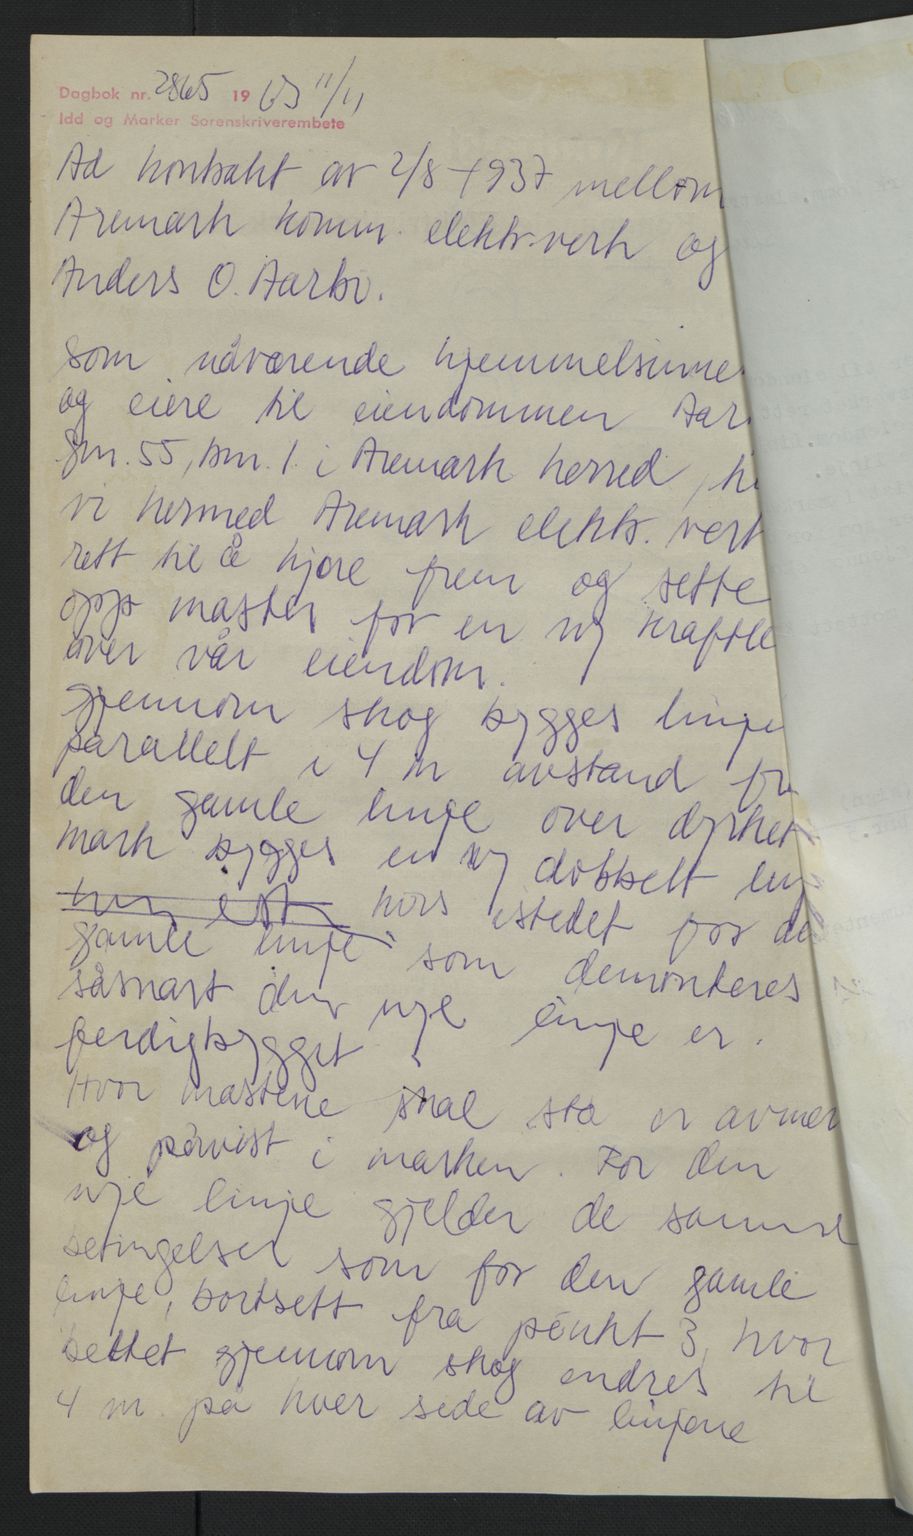 Dagbok nr. 2865 19 63 11/11
Idd og Marker Sorenskriverembete
Ad kontrakt av 2/8 1937 mellom
Aremark komm. elektr.verk og
Anders O. Aarbu.
Som nåværende hjemmelsinne
og eiere til eiendommen Aar
gnr. 55, bnr. 1 i Aremark herred,
vi hermed Aremark elektr. verk
rett til å kjøre frem og sette
opp master for en ny kraftle
over vår eiendom.
Gjennom skog bygges linje
parallelt i 4 m avstand fr
den gamle linje over dyrket
mark bygges en ny dobbelt linj
kurs istedet for de
gamle linje som demonteres
såsnart den nye linje er.
ferdigbygget
Hvor mastene skal stå er avmer
og påvist i marken. For den
nye linje gjelder de samme
betingelser som for den gamle
linje, bortsett fra punkt 3, hvor
beltet gjennom skog endres til
4 m på hver side av linjene